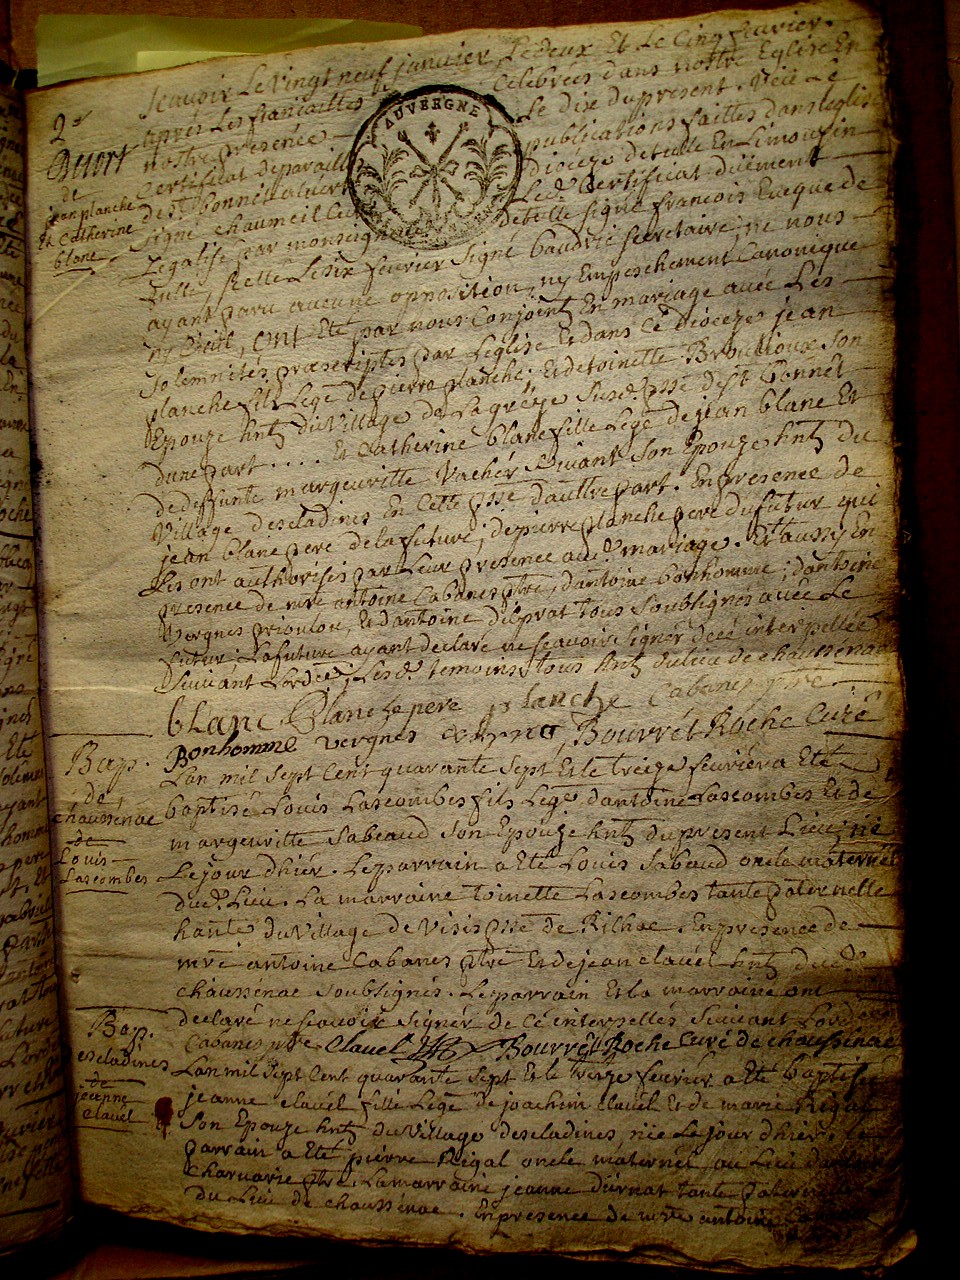 Scavoir Le vingt neuf janvier, Le deux Et Le Cinq fevrier.
apres Les fiancailles Celebrées dans notre Eglise En
nostre presence Le dix du present. Veü Le
Certificat de publications faittes dans leglise
de st bonnet dioceze de tulle En Limouzin
Signé chaumeil Curé Led. Certificat düement
Legalisé par monseigneur de tulle signé françois Eveque de
Tulle, Le six fevrier Signé baudrie secretaire; ne nous
ayant paru aucune opposition, ny Empeschement Canonique
ny Civil, ont Eté par nous Conjoints En mariage avec Les
Solemnités prescriptes par Leglise Et dans Ce Dioceze, jean
planche fils Lege de pierre planche, Et de toinette Broulioux son
Epouze hnts du village de Susd. psse de st bonnet
dune part .... Et Catherine blanc fille Lege de jean blanc Et
de deffunte margueritte Vacher vivant son Epouze hnts du
Village descladines En Cette psse dauttre part. En presence de
jean blanc pere de la future, de pierre planche pere du futur qui
Les ont authorisés par Leur presence aud. mariage. Et aussy En
presence de mre antoine Cabanes ptre, dantoine bonhomme; dantoine
Vergnes Et dantoine delprat tous soubsignes avec Le
futur; La future ayant declaré ne scavoir signer de ce interpellée
Suivant Lordce; Lesd. temoins tous hnts du lieu de chaussenac
blanc planche pere planche Cabanes ptre
Bonhomme vergnes Bourrét Roche Curé
2e
Buort
de
jean planche
Et Catherine
blanc
Bap.
de
chaussenac
de
Louis
Lascombes
Lan mil sept Cent quarante sept Et le treize fevrier a Eté
baptisé Louis Lascombes fils Lege dantoine Lascombes Et de
margueritte Sabeaud son Epouze hnts du present Lieu; né
Le jour dhier. Le parrain a Eté Louis Sabaud oncle maternel
dud. Lieu. La marraine toinette Lascombes tante paternelle
hante du village de Visis psse de Rilhac. En presence de
mre antoine Cabanes ptre Et de jean clavel hnts dud.
chaussenac soubsignes. Le parrain Et la marraine ont
declaré ne scavoir signer de Cé interpellés Suivant Lordce
Cabanes ptre Clavel Bourrét Roche Curé de chaussenac
Bap.
descladines
de
jeanne
clavel
Lan mil sept Cent quarante sept Et le treize fevrier a Eté baptisée
jeanne clavel fille Lege de joachim clavel Et de marie Rigal
son Epouze hnts du Village descladines, née Le jour dhier. Le
parrain a Eté pierre Rigal oncle maternel au Lieu
Charvarie ptre. La marraine jeanne dernat tante paternelle
du Lieu de chaussenac. En presence de mre antoine
AUVERGNE